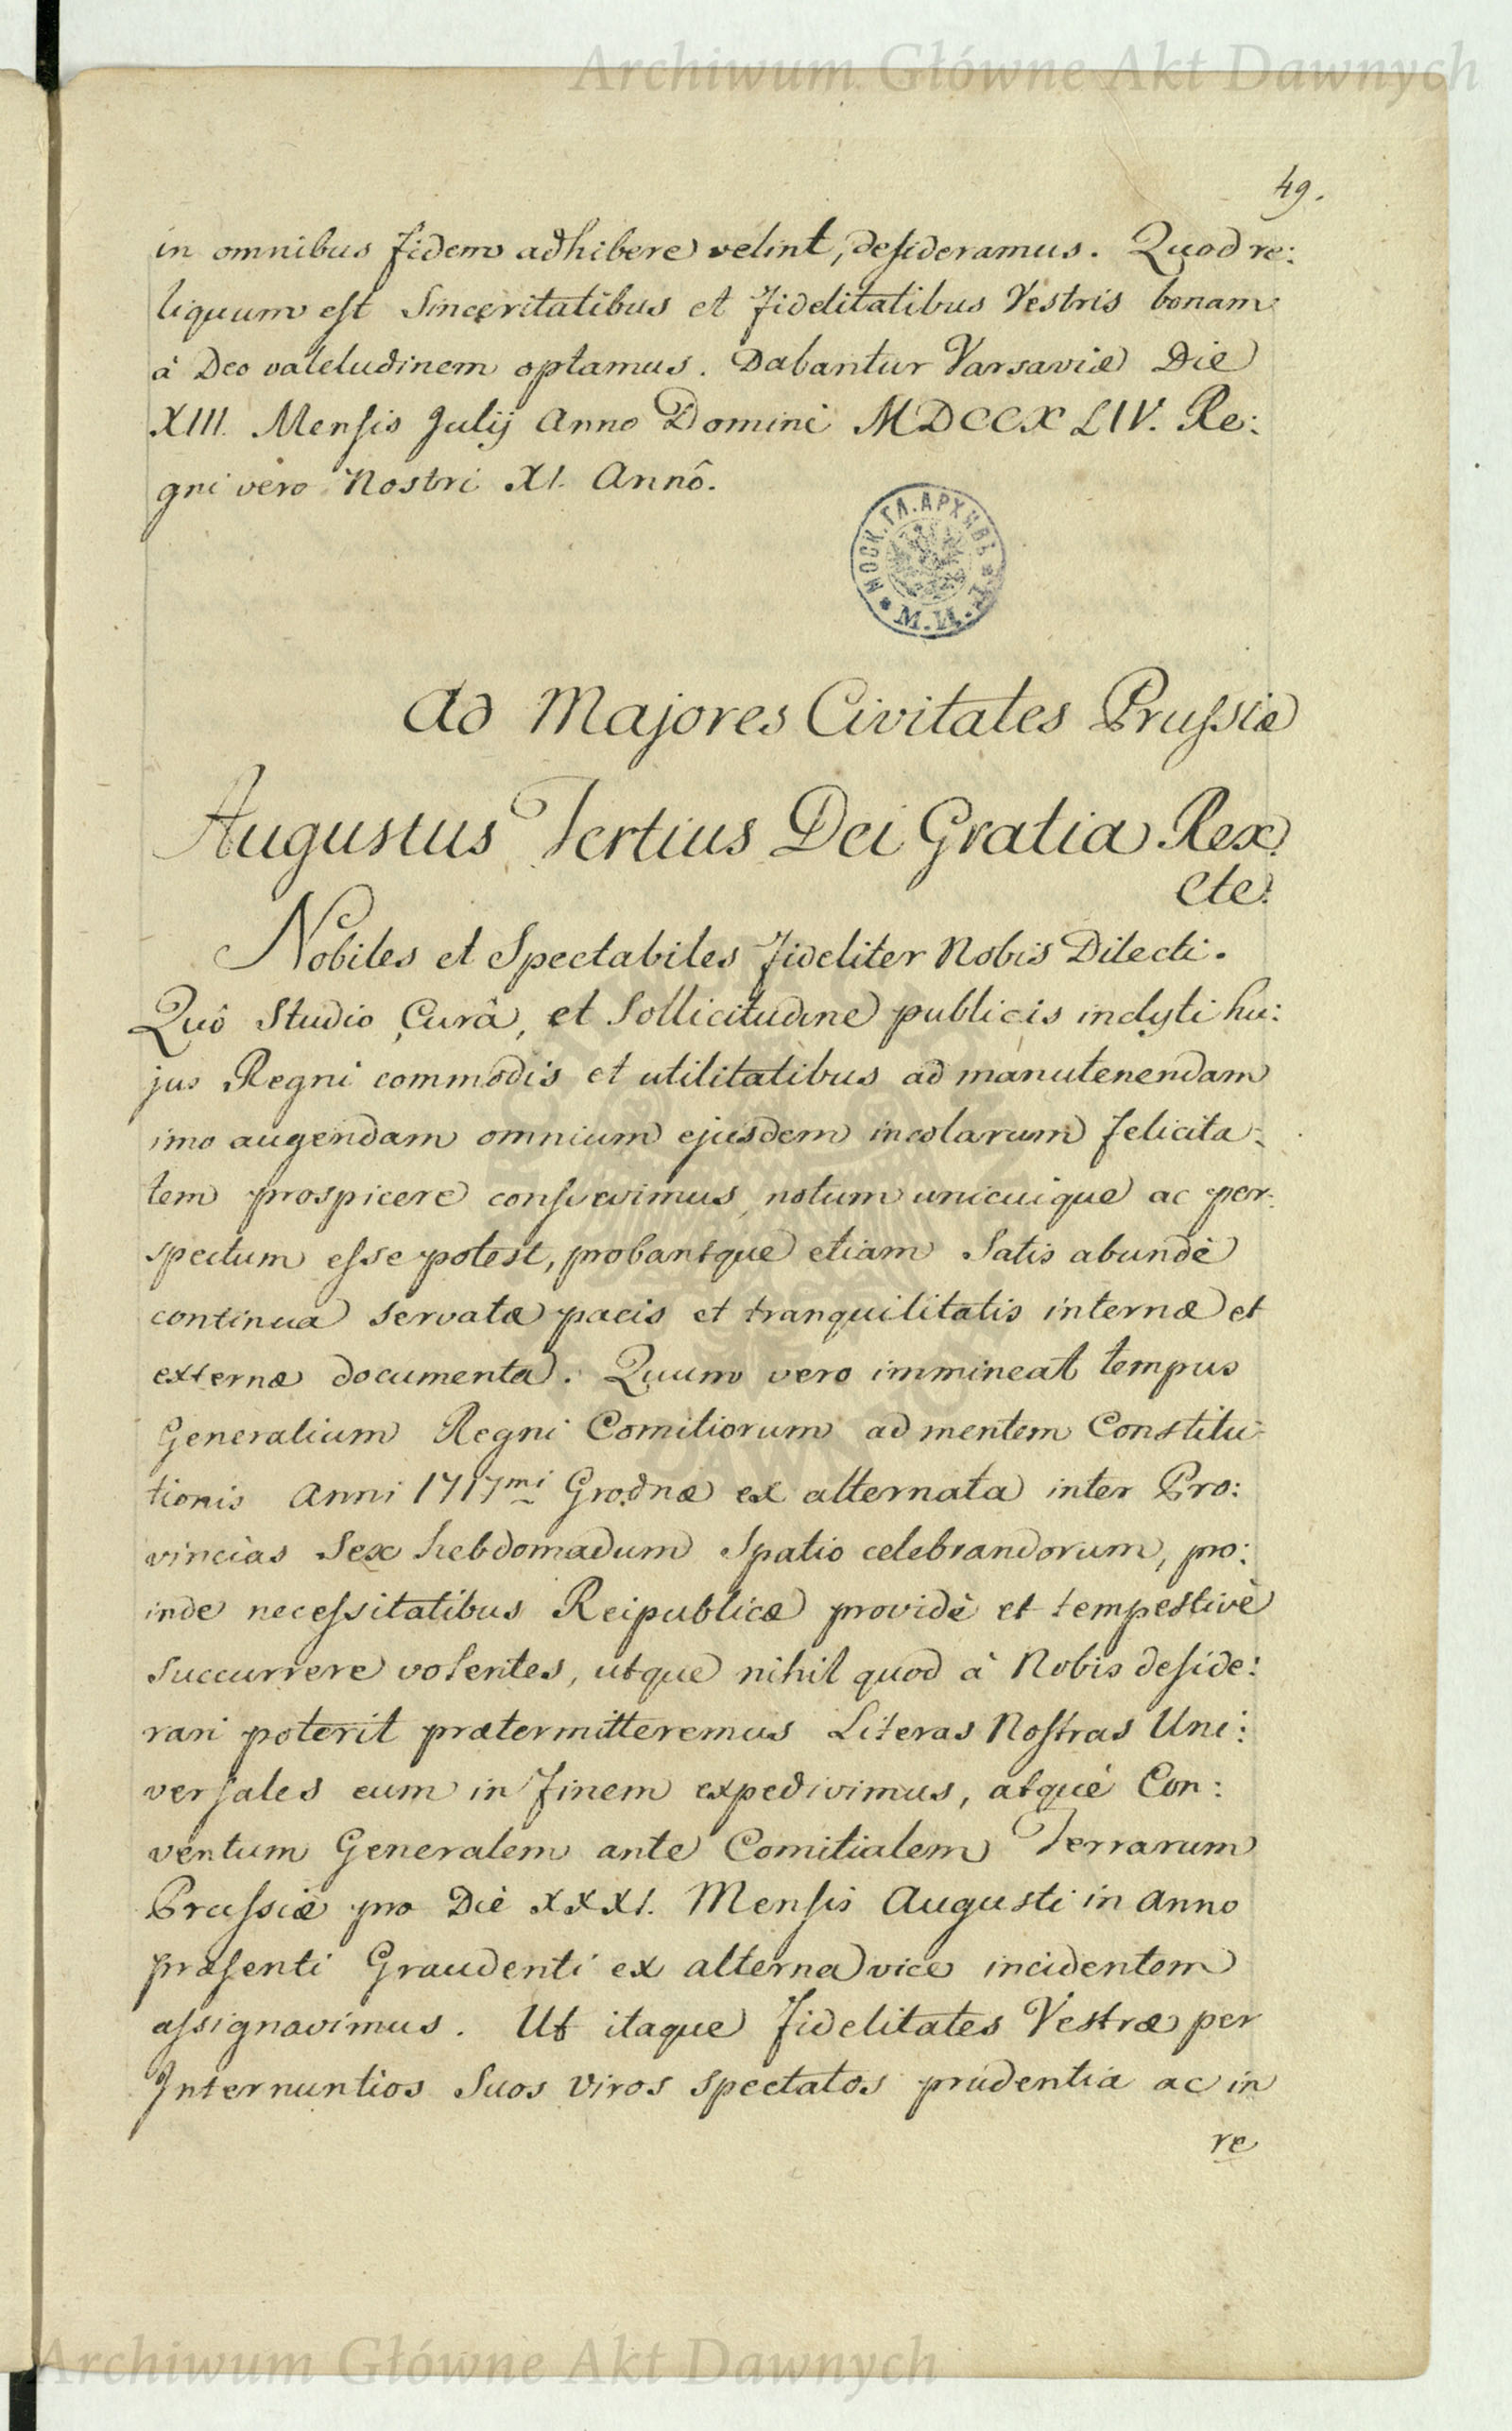 Archiwum Główne Akt Dawnych
49.
in omnibus fidem adhibere velint, desideramus. Quod re:
liquum est Sinceritatibus et Fidelitatibus Vestris bonam
à Deo valetudinem optamus. Dabantur Varsaviæ Die
XIII. Mensis Julij Anno Domini MDCCXLIV. Re:
gni vero Nostri XI. Annô.
МОСК. ГЛ. АРХИВЪ
М. И. Д.
Ad Majores Civitates Prussiæ
Augustus Tertius Dei Gratia Rex
etc:
Nobiles et Spectabiles Fideliter Nobis Dilecti.
Quô Studio Curâ, et Sollicitudine publicis inclyti hu:
jus Regni commodis et utilitatibus ad manutenendam
imo augendam omnium ejusdem incolarum felicita:
tem prospicere consvevimus, notum unicuique ac per:
spectum esse potest, probantque etiam Satis abundè
continua servatæ pacis et tranquilitatis internæ et
externæ documenta. Quum vero immineat tempus
Generalium Regni Comitiorum ad mentem Constitu:
tionis Anni 1717mi Grodnæ ex alternata inter Pro:
vincias Sex hebdomadum Spatio celebrandorum, pro:
inde necessitatibus Reipublicæ providè et tempestivè
succurrere volentes, utque nihil quod à Nobis deside:
rari poterit prætermitteremus Literas Nostras Uni:
versales eum in finem expedivimus, atque Con:
ventum Generalem ante Comitialem Terrarum
Prussiæ pro Die XXXI. Mensis Augusti in Anno
præsenti Graudenti ex alterna vice incidentem
assignavimus. Ut itaque Fidelitates Vestræ per
Internuntios Suos Viros spectatos prudentia ac in
re
Archiwum Główne Akt Dawnych